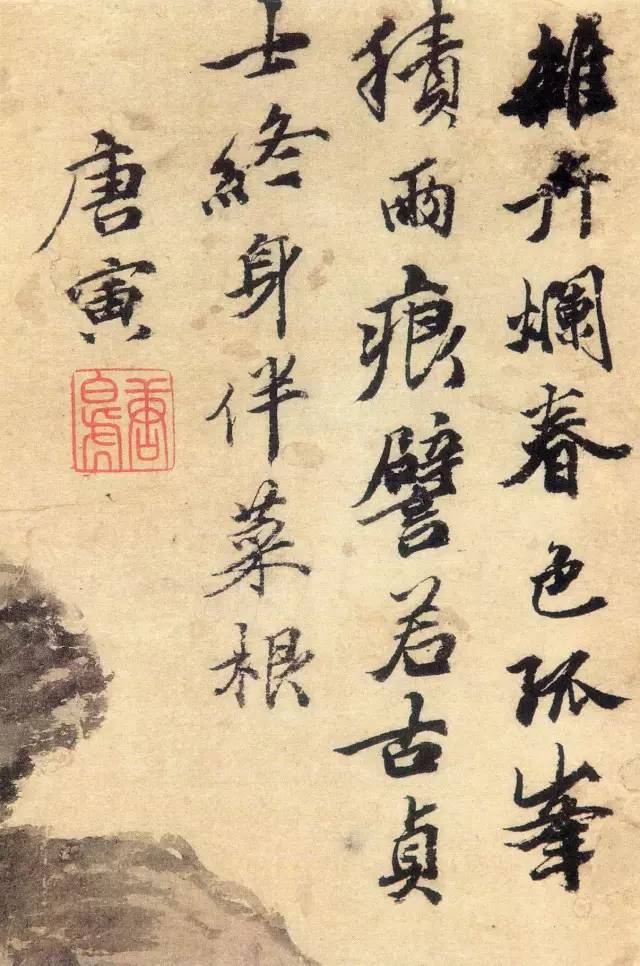 雜卉爛春色孤峯
積雨痕譬若古貞
士終身伴菜根
唐寅